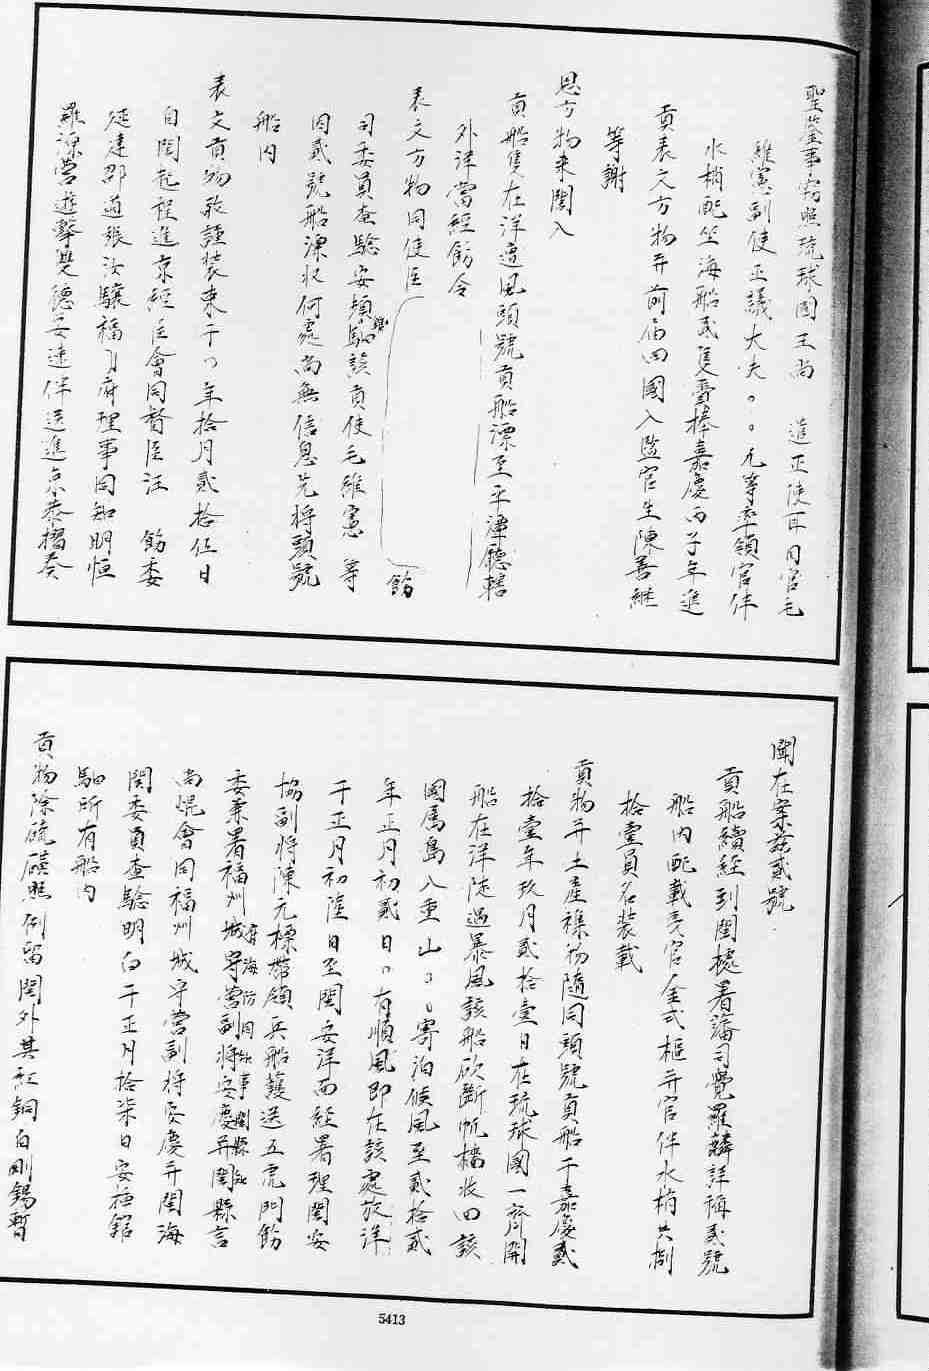 聖鑒事竊照琉球國王尚 遣正使耳目官毛
維憲副使正議大夫〻〻元等率領官伴
水梢配坐海船貳隻賫捧嘉慶丙子年進
貢表文方物并前届回國入監官生陳善継
等謝
恩方物来閩入
貢船隻在洋遭風頭號貢船漂至平潭廳轄
外洋當經飭令
表文方物同使臣 飭
司委員查驗安頓館馹該貢使毛維憲 等
因貳號船漂收何處尚無信息先将頭號
船内
表文貢物敬謹装束于〻年拾月貳拾伍日
自閩起程進京經臣會同督臣汪 飭委
延建邵道張汝驤福〻府理事同知明恒
羅源營遊擊雙德安速伴送進京恭摺奏
聞在案茲貳號
貢船續經到閩據署藩司覺羅麟詳稱貳號
船内配載亮官金式樞并官伴水梢共捌
拾壹員名装載
貢物并土產襍物隨同頭號貢船于嘉慶貳
拾壹年玖月貳拾壹日在琉球國一齊開
船在洋陡遇暴風該船砍斷帆檣收回該
國属島八重山〻〻寄泊候風至貳拾貳
年正月初貳日〻有順風即在該處放洋
于正月初陸日至閩安洋面經署理閩安
協副将陳元標帶領兵船護送五虎門飭
委兼署福州府海防同知事閩縣知
城守營副将安慶并閩縣言
尚焜會同福州城守營副将安慶并閩海
関委員查驗明白于正月拾柒日安插館
馹所有船内
貢物除硫磺照例留閩外其紅銅白剛錫暫
5413